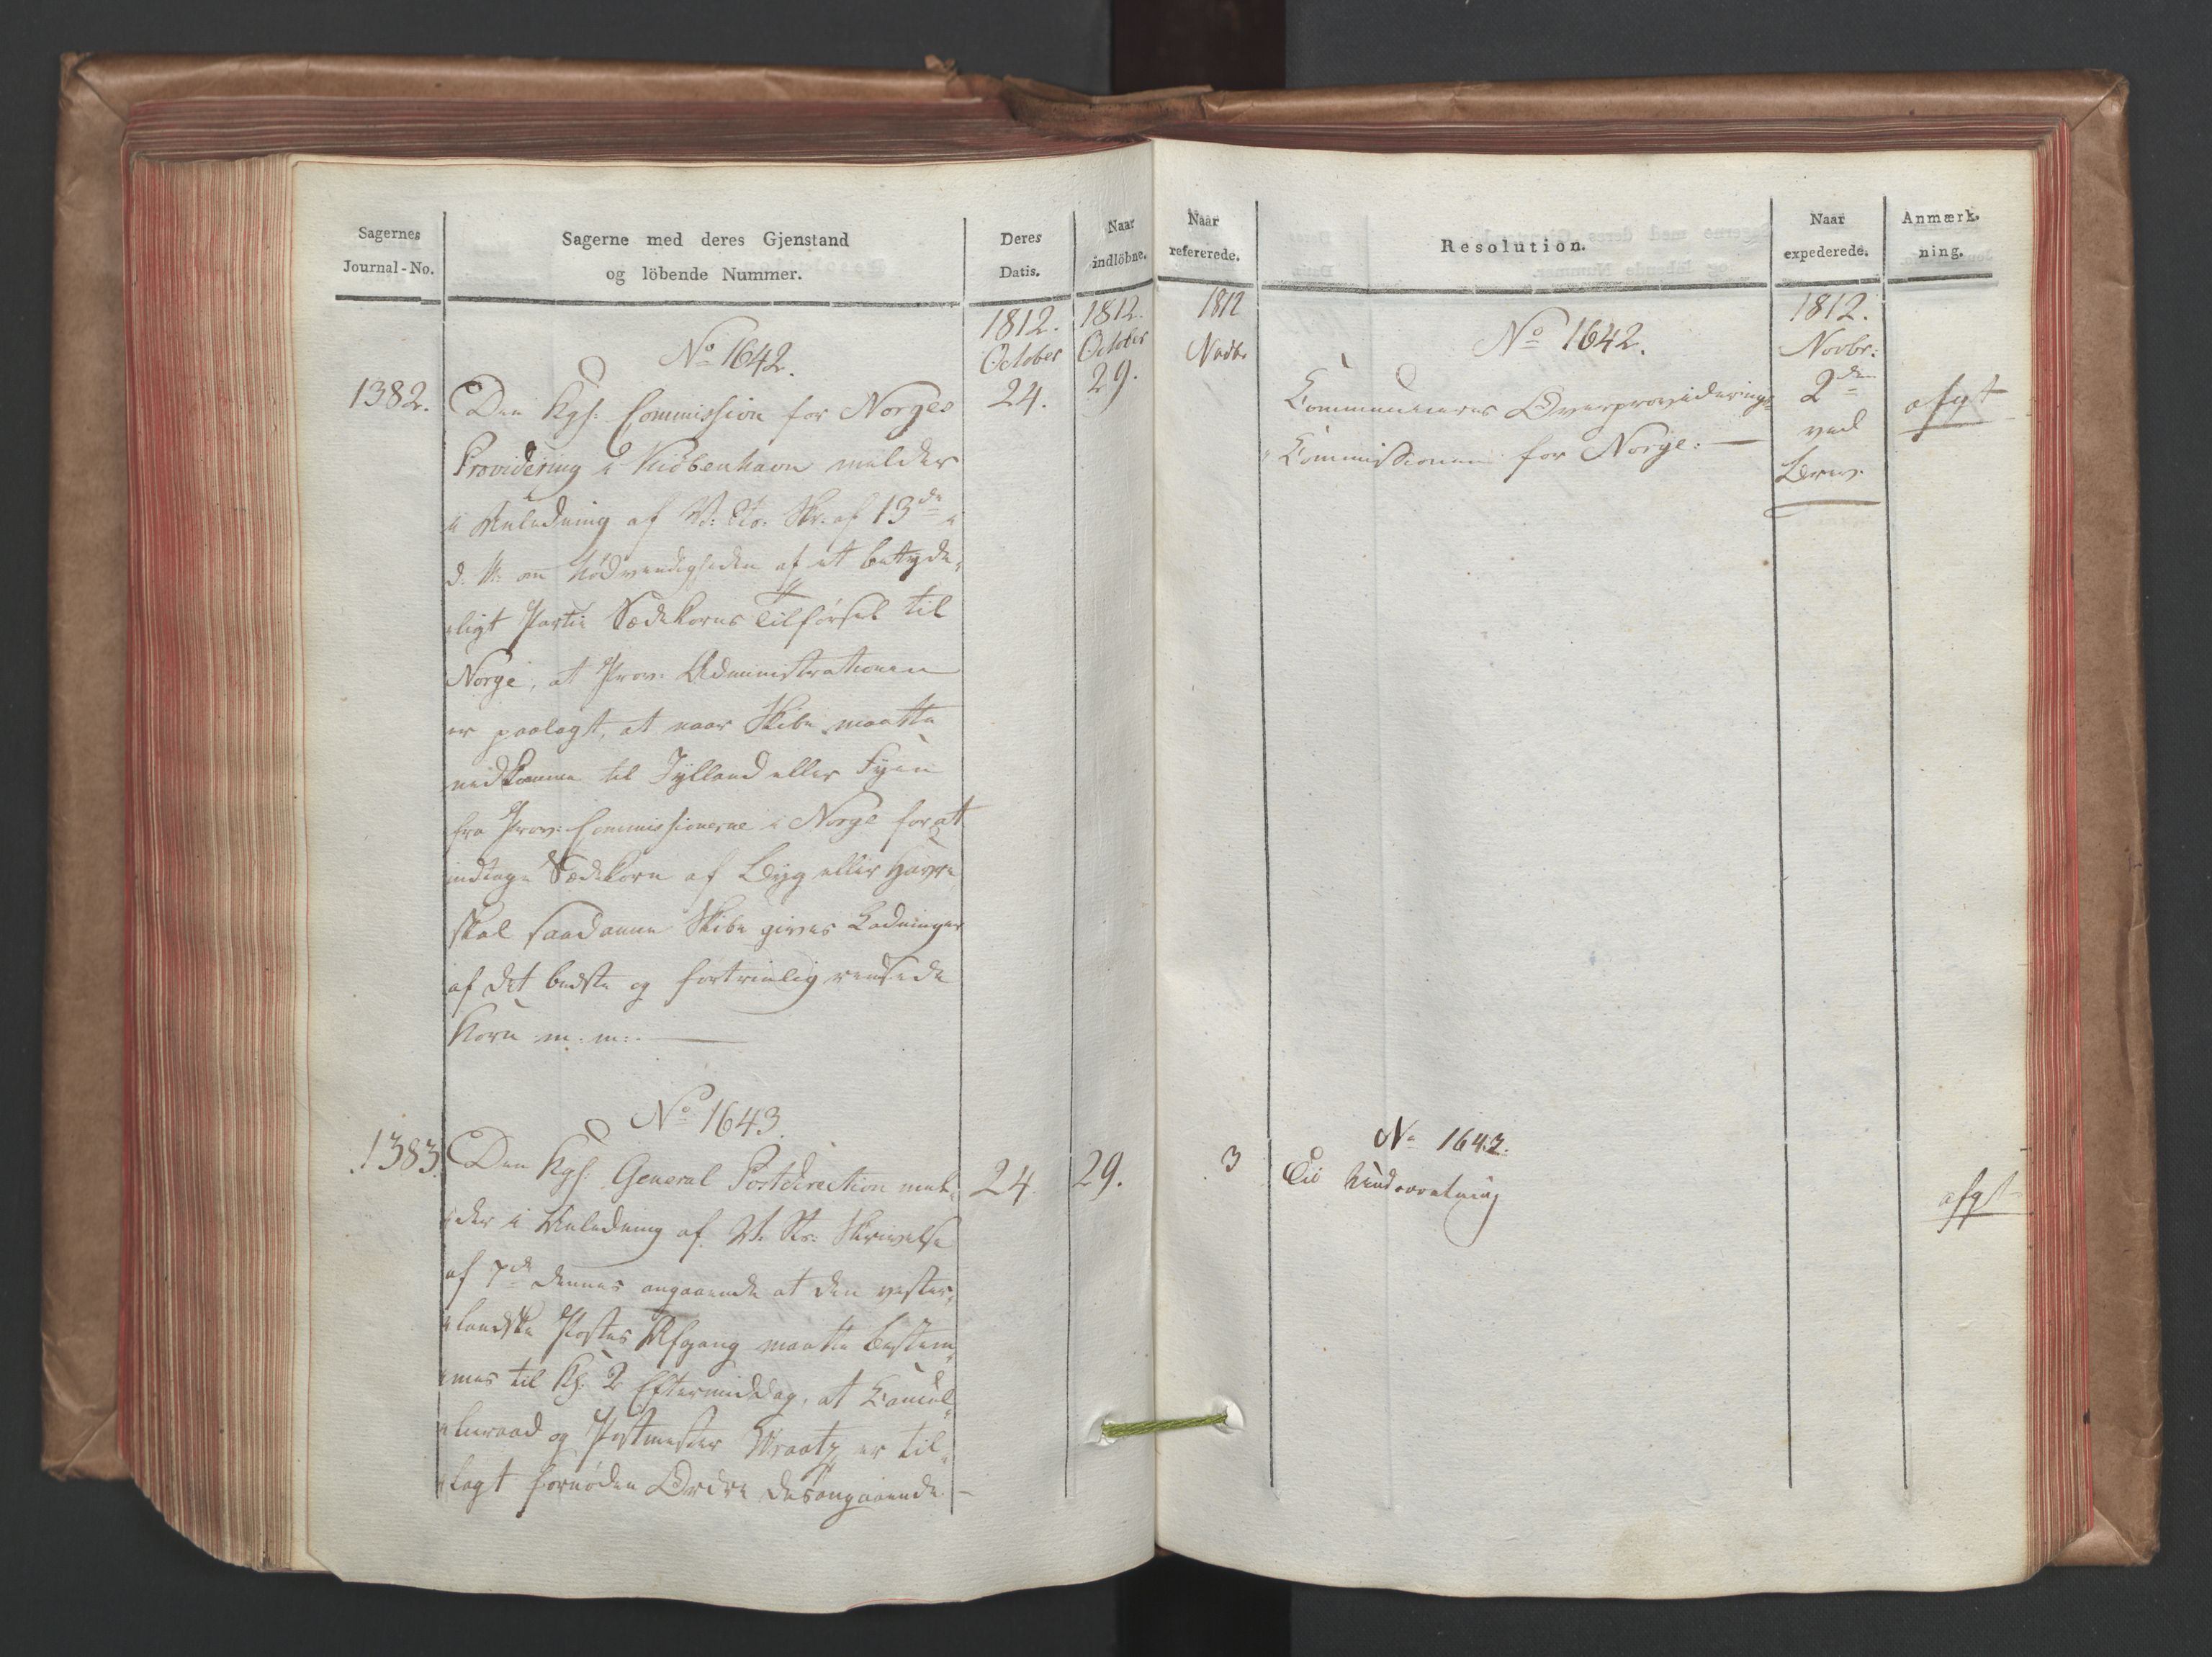 Sagernes
Journal-No.
Sagerne med deres Gjenstand
og löbende Nummer.
Deres
Datis.
Naar
indlöbne.
1812.
October
1812.
October
No 1642.
1382.
24.
29.
Den Kgl. Commission for Norges
Providering i Kiöbenhavn melder
i Anledning af V: Sto: Skr. af 13de
d. M. om Nödvendigheden af et betyde,
ligt Partie Sædekorns Tilförsel til
Norge, at Prov: Administrationen
er paalagt, at naar Skibe maatte
nedkomme til Jylland eller Fyen
fra Prov: Commissionerne i Norge for at
indtage Sædekorn af Byg eller Havre
skal saadanne Skibe gives Ladninger
af det bedste og fortrinlig rensede
Korn m. m:
No 1643.
1383.
24
29.
Den Kgl. General Postdirection mel,
der i Anledning af V. Sts: Skrivelse
af 7de dennes angaaende at den vester,
landske Postes Afgang maatte bestem,
mes til Kl. 2 Eftermiddag, at Cancel,
lieraad og Postmester Wraatz er til,
lagt fornöden Ordre desangaaende. –
Naar
refererede.
Resolution.
Naar
expederede.
Anmærk-
ning.
1812
Novbr.
1812.
Novbr:
No 1642.
Communiceres Overproviderings-
Commissionen for Norge. —
2den
ved
Brev.
afgt
No 1643.
3
Til Underretning
afgt